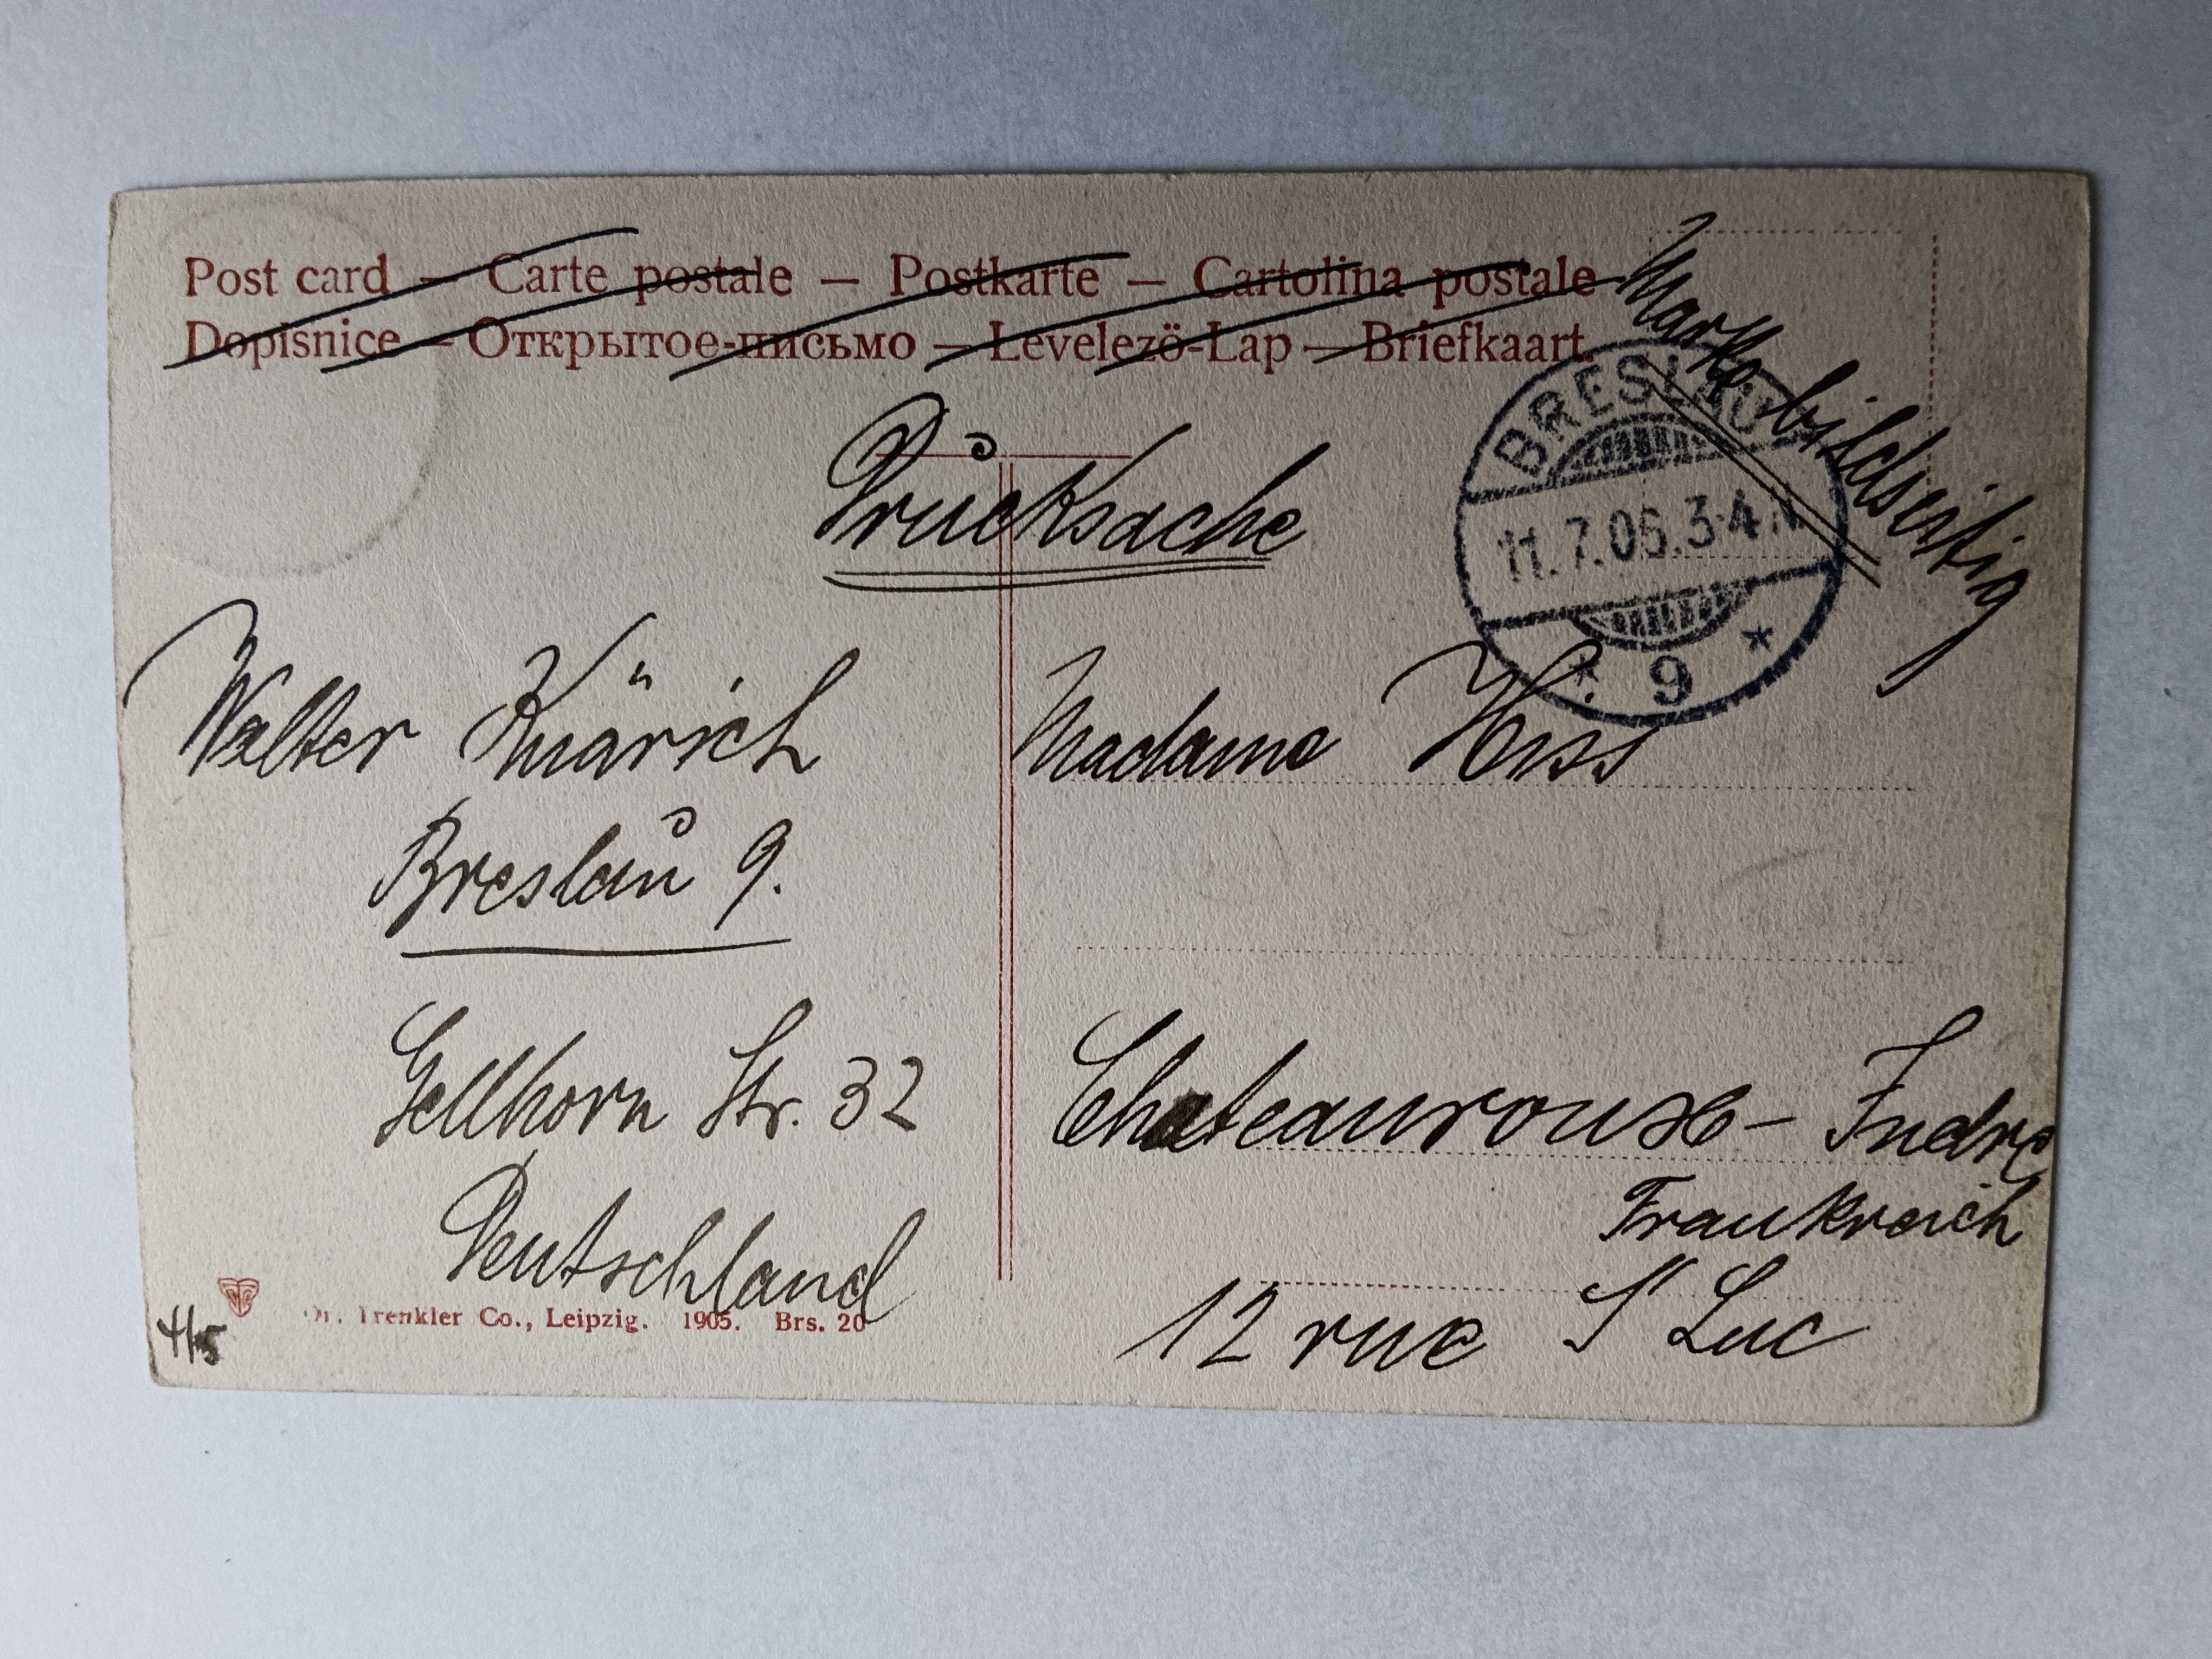 Post card — Carte postale — Postkarte — Cartolina postale
Dopisnice — Открытое-письмо — Levelezö-Lap — Briefkaart.
Marke bildseitig
BRESLAU
11.7.06.3-4.N
* 9 *
Drucksache
Walter Knärich
Breslau 9.
Gellhorn Str. 32
Deutschland
Madame Hiss
Chateauroux - Indre
Frankreich
12 rue St Luc
Dr. Trenkler Co., Leipzig. 1905. Brs. 20